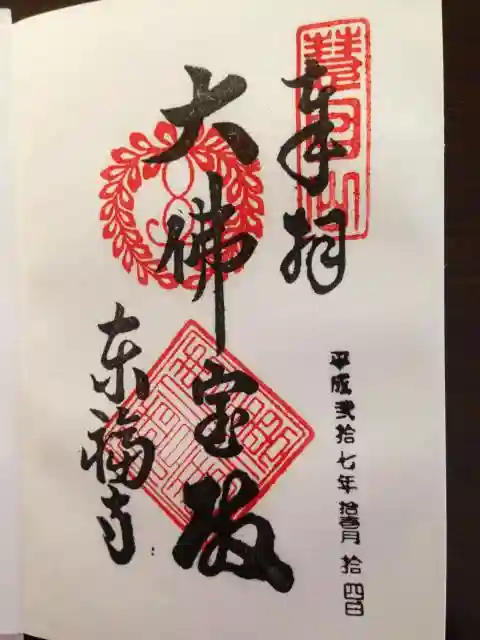 奉拝
慧日山
平成弐拾七年拾壹月拾四日
大佛宝殿
东福寺